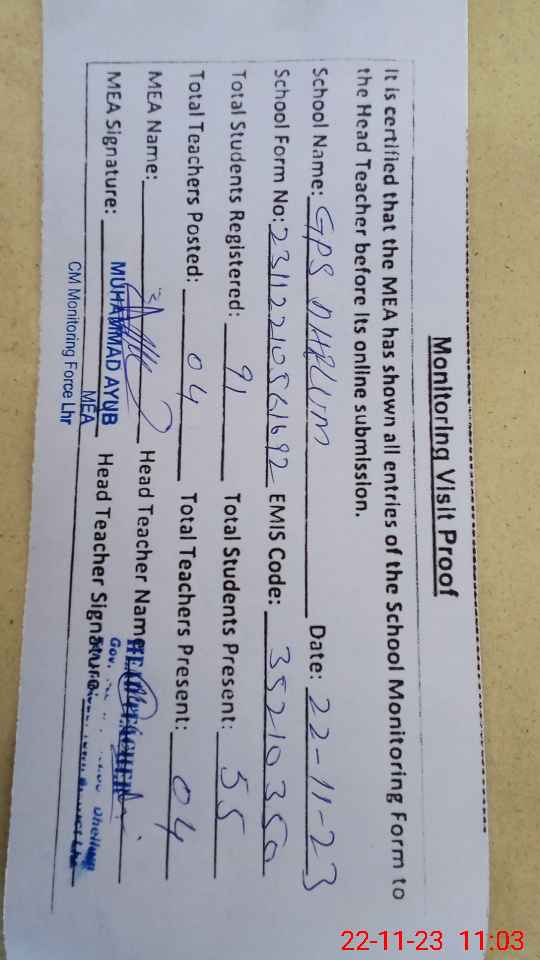 Monitoring Visit Proof
It is certified that the MEA has shown all entries of the School Monitoring Form to
the Head Teacher before its online submission.
School Name: GPS DHLLUM Date: 22-11-23
School Form No: 23112210561692 EMIS Code: 35210350
Total Students Registered: 91 Total Students Present: 55
Total Teachers Posted: 04 Total Teachers Present: 04
MEA Name: Head Teacher Name: HEAD TEACHER
MEA Signature: MUHAMMAD AYUB Head Teacher Signature:
MEA
CM Monitoring Force Lhr
22-11-23 11:03